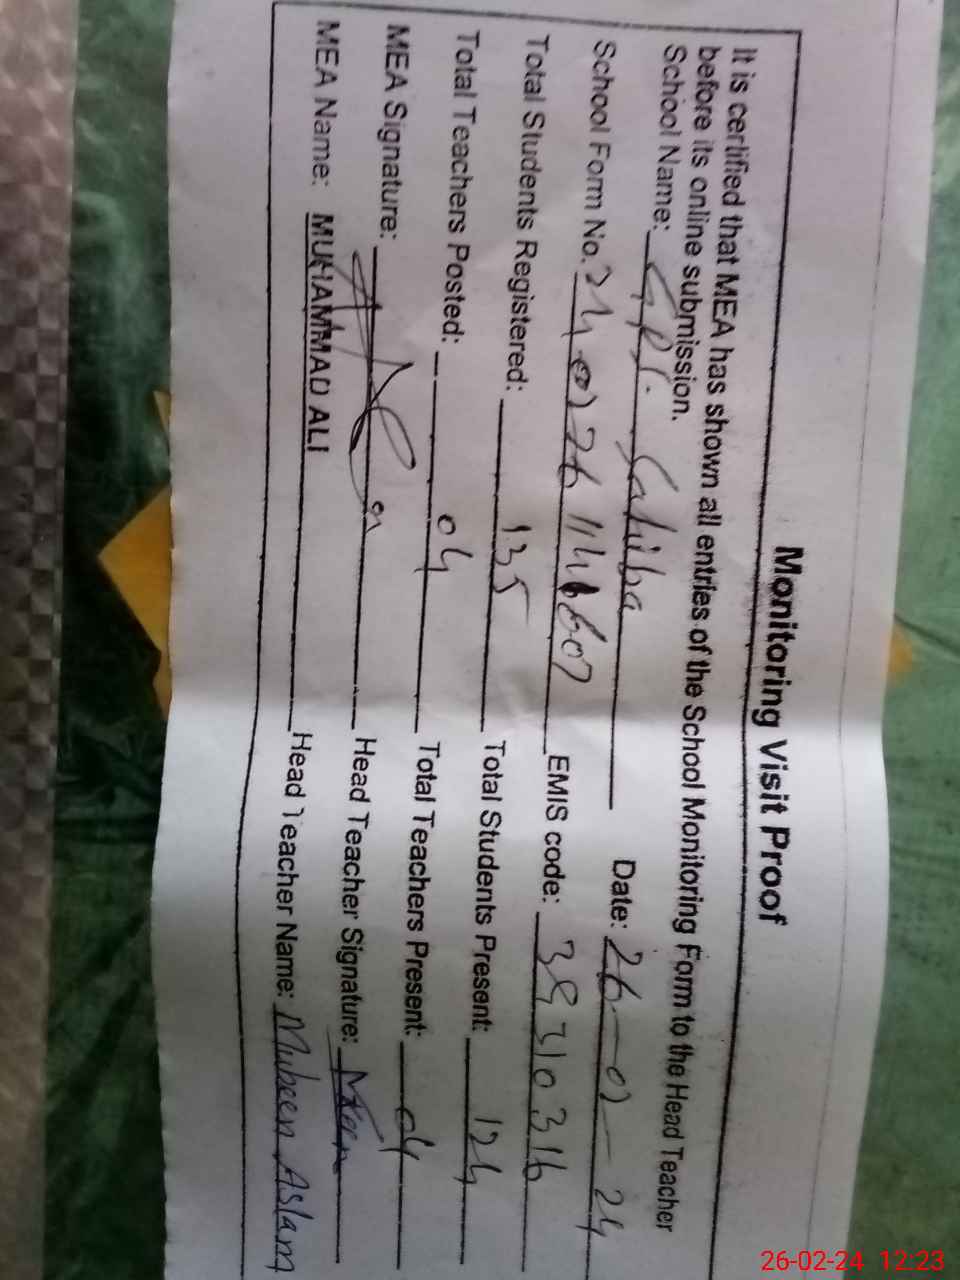 Monitoring Visit Proof
It is certified that MEA has shown all entries of the School Monitoring Form to the Head Teacher
before its online submission.
School Name: GPS. Date: 26-02-24
School Form No. EMIS code: 38310316
Total Students Registered: 135 Total Students Present: 124
Total Teachers Posted: 04 Total Teachers Present: 04
MEA Signature: Head Teacher Signature:
MEA Name: MUHAMMAD ALI Head Teacher Name: Mubeen Aslam
26-02-24 12:23